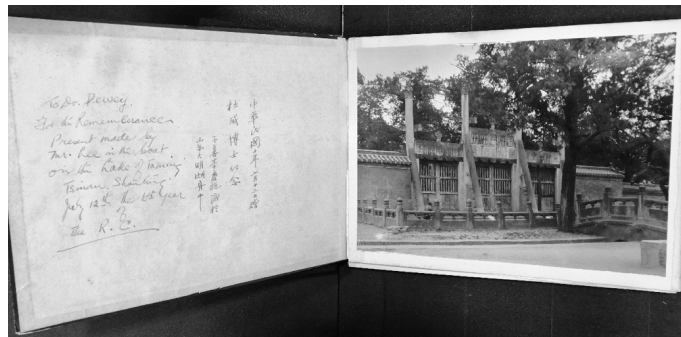 To Dr. Dewey.
For the Remembrance
Present made by
Mr. Lee in the boat.
on the Lake of Taming
Tsinan, Shantung
July 12th, the year
of
The R. C.
中華民國十年七月十二
杜威博士紀念
識於
山東大明湖舟中